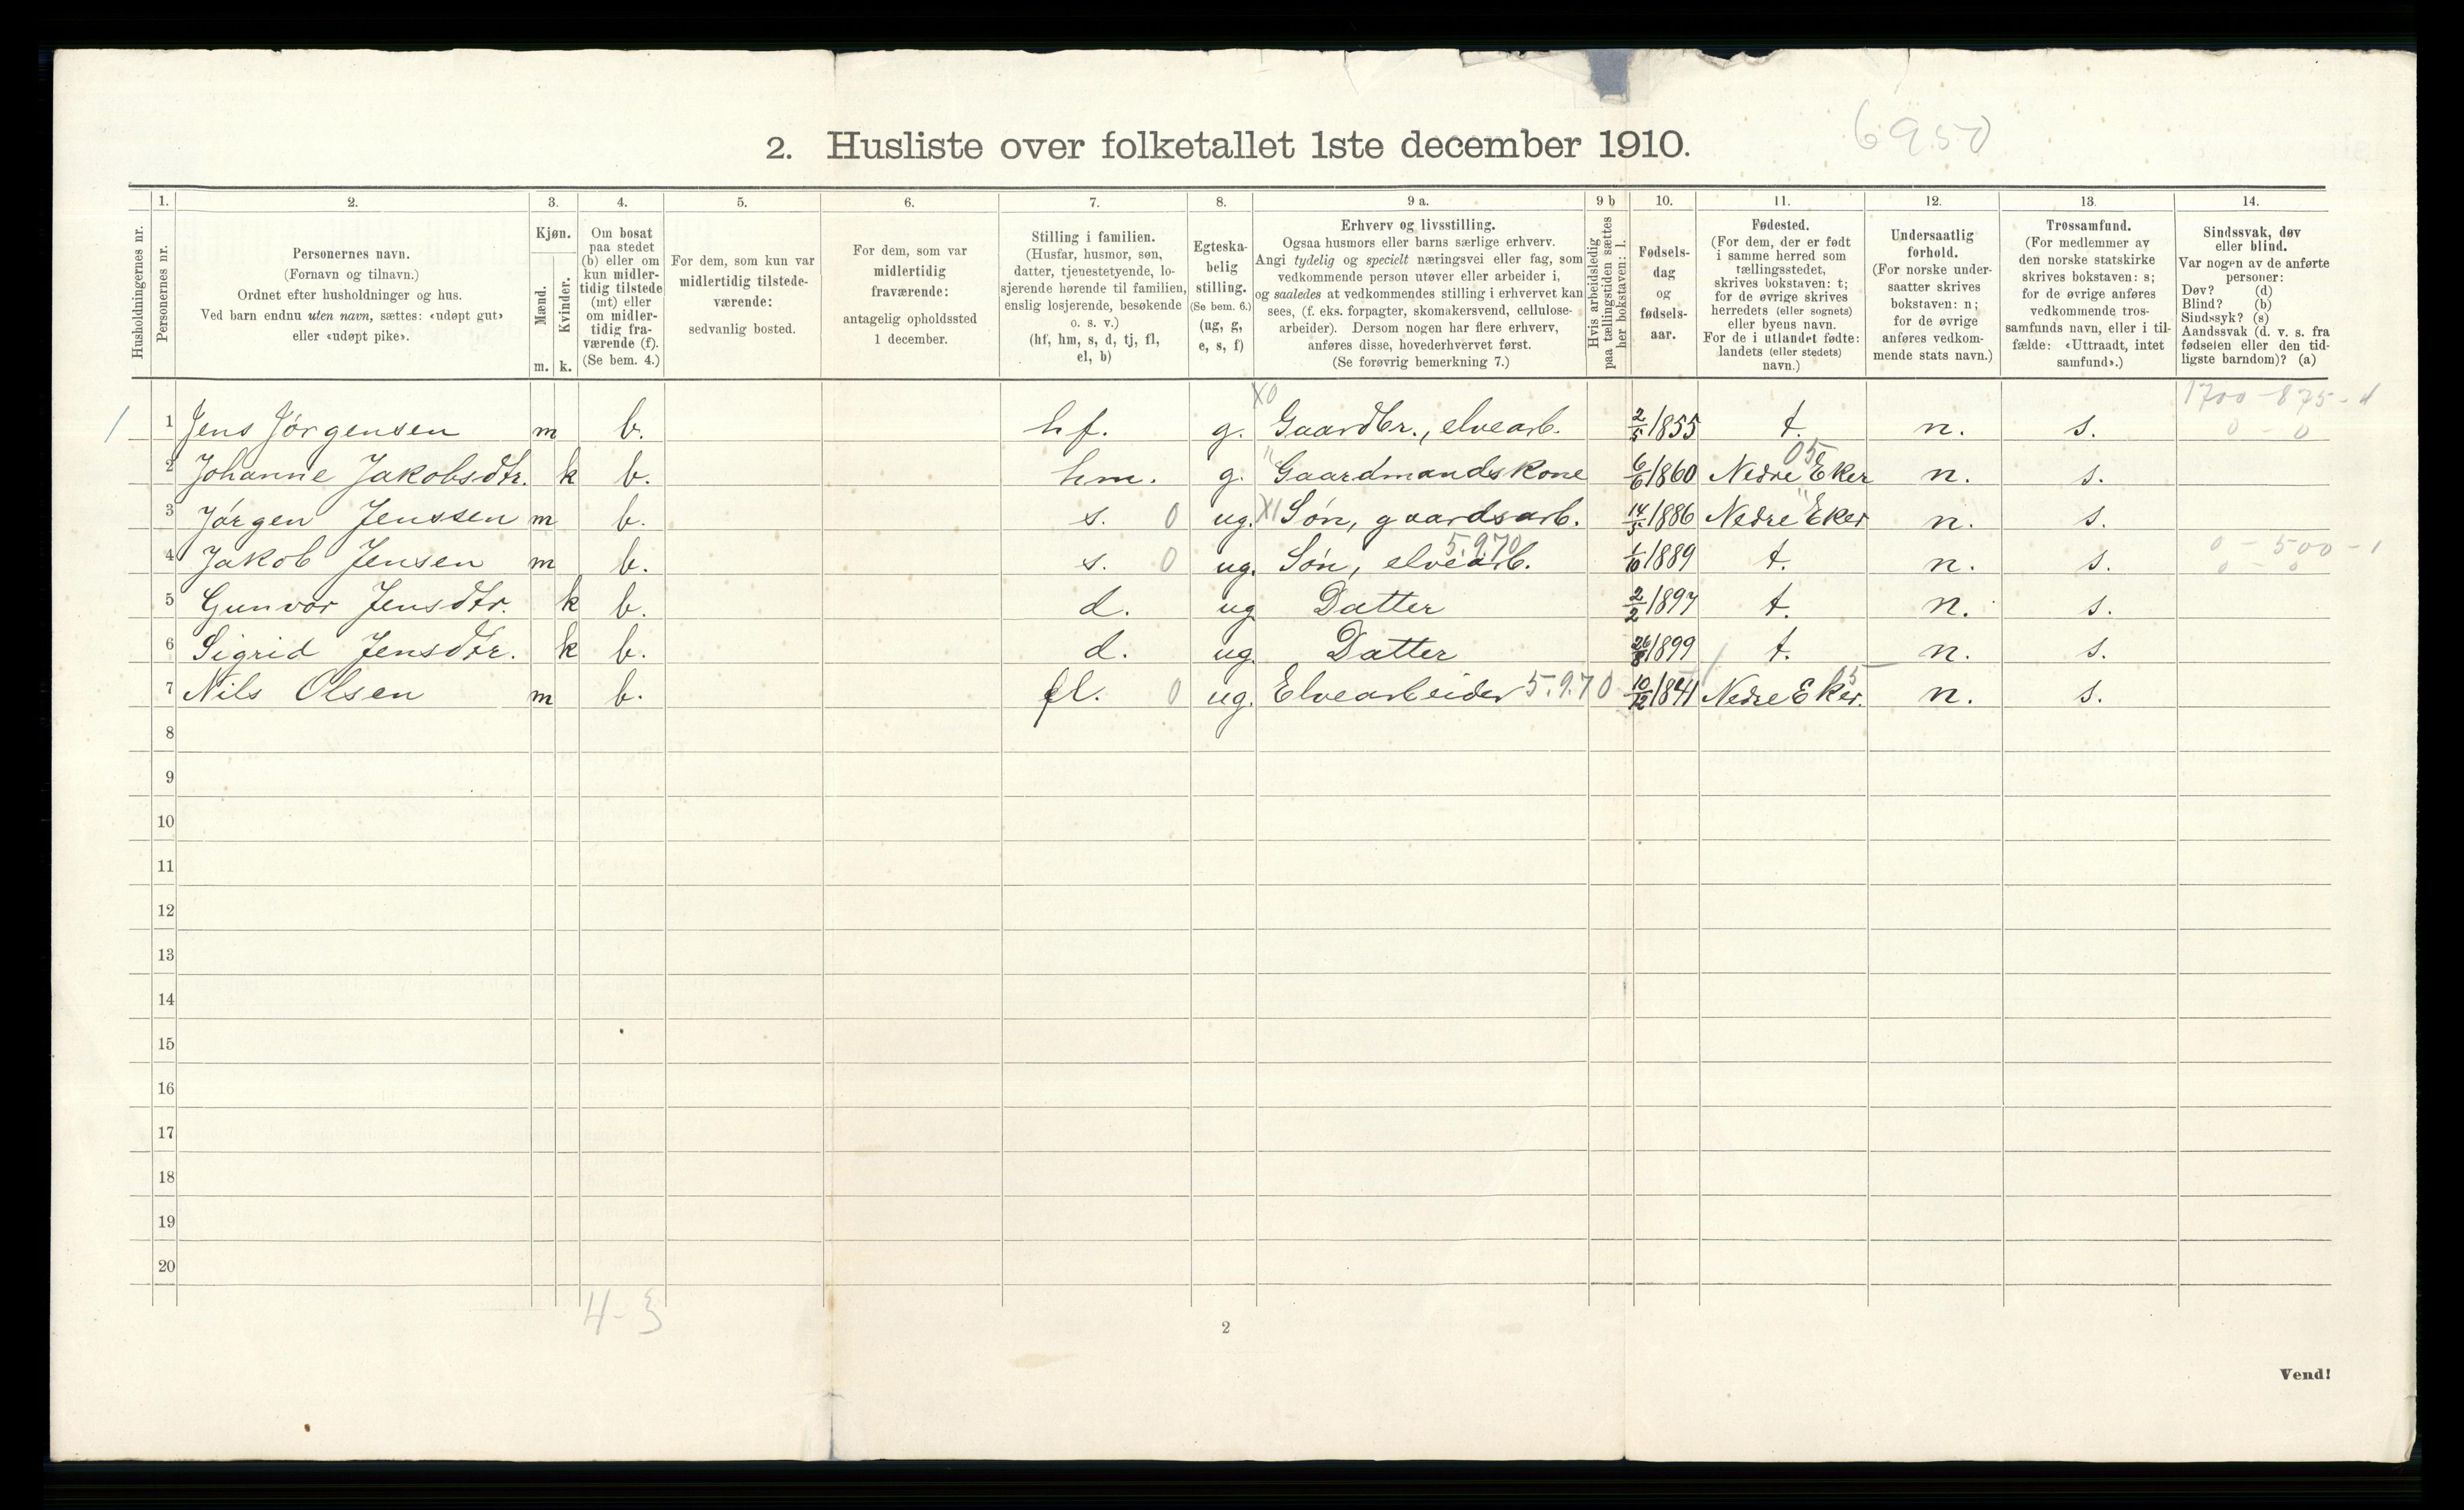 6950
2. Husliste over folketallet 1ste december 1910.
Husholdningernes nr.
1.
Personernes nr.
2.
Personernes navn.
(Fornavn og tilnavn.)
Ordnet efter husholdninger og hus.
Ved barn endnu uten navn, sættes: «udøpt gut»
eller «udøpt pike».
3.
Kjøn.
Mænd.
Kvinder.
m. k.
4.
Om bosat
paa stedet
(b) eller om
kun midler-
tidig tilstede
(mt) eller
om midler-
tidig fra-
værende (f).
(Se bem. 4.)
5.
For dem, som kun var
midlertidig tilstede-
værende:
sedvanlig bosted.
6.
For dem, som var
midlertidig
fraværende:
antagelig opholdssted
1 december.
7.
Stilling i familien.
(Husfar, husmor, søn,
datter, tjenestetyende, lo-
sjerende hørende til familien,
enslig losjerende, besøkende
o. s. v.)
(hf, hm, s, d, tj, fl,
el, b)
8.
Egteska-
belig
stilling.
(Se bem. 6.)
(ug, g,
e, s, f)
9 a.
Erhverv og livsstilling.
Ogsaa husmors eller barns særlige erhverv.
Angi tydelig og specielt næringsvei eller fag, som
vedkommende person utøver eller arbeider i,
og saaledes at vedkommendes stilling i erhvervet kan
sees, (f. eks. forpagter, skomakersvend, cellulose-
arbeider). Dersom nogen har flere erhverv,
anføres disse, hovederhvervet først.
(Se forøvrig bemerkning 7.)
9 b
Hvis arbeidsledig
paa tællingstiden sættes
her bokstaven: l.
10.
Fødsels-
dag
og
fødsels-
aar.
11.
Fødested.
(For dem, der er født
i samme herred som
tællingsstedet,
skrives bokstaven: t;
for de øvrige skrives
herredets (eller sognets)
eller byens navn.
For de i utlandet fødte:
landets (eller stedets)
navn.)
12.
Undersaatlig
forhold.
(For norske under-
saatter skrives
bokstaven: n;
for de øvrige
anføres vedkom-
mende stats navn.)
13.
Trossamfund.
(For medlemmer av
den norske statskirke
skrives bokstaven: s;
for de øvrige anføres
vedkommende tros-
samfunds navn, eller i til-
fælde: «Uttraadt, intet
samfund».)
14.
Sindssvak, døv
eller blind.
Var nogen av de anførte
personer:
Døv? (d)
Blind? (b)
Sindssyk? (s)
Aandssvak (d. v. s. fra
fødselen eller den tid-
ligste barndom)? (a)
X0 1700-875-
1 1 Jens Jørgensen m b. hf. g. Gaardbr., elvearb. 2/5 1855 t. n. s. 0-0
05
2 Johanne Jakobsdtr. k b. hm. g. " Gaardmandskone 6/6 1860 Nedre Eker n. s.
3 Jørgen Jenssen m b. s. 0 ug. X1 Søn, gaardsarb. 14/5 1886 Nedre " Eker n. s.
5.9.70 0-500-1
4 Jakob Jensen m b. s. 0 ug. Søn, elvearb. 1/10 1889 t. n. s. 0-0
5 Gunvor Jensdtr. k b. d. ug Datter 2/2 1897 t. n. s.
6 Sigrid Jensdtr. k b. d. ug. Datter 26/8 1899 t. n. s.
7 Nils Olsen m b. fl. 0 ug. Elvearbeider 5.9.70 10/12 1841 Nedre Eker. n. s.
8
9
10
11
12
13
14
15
16
17
18
19
20
4-3
2
Vend!